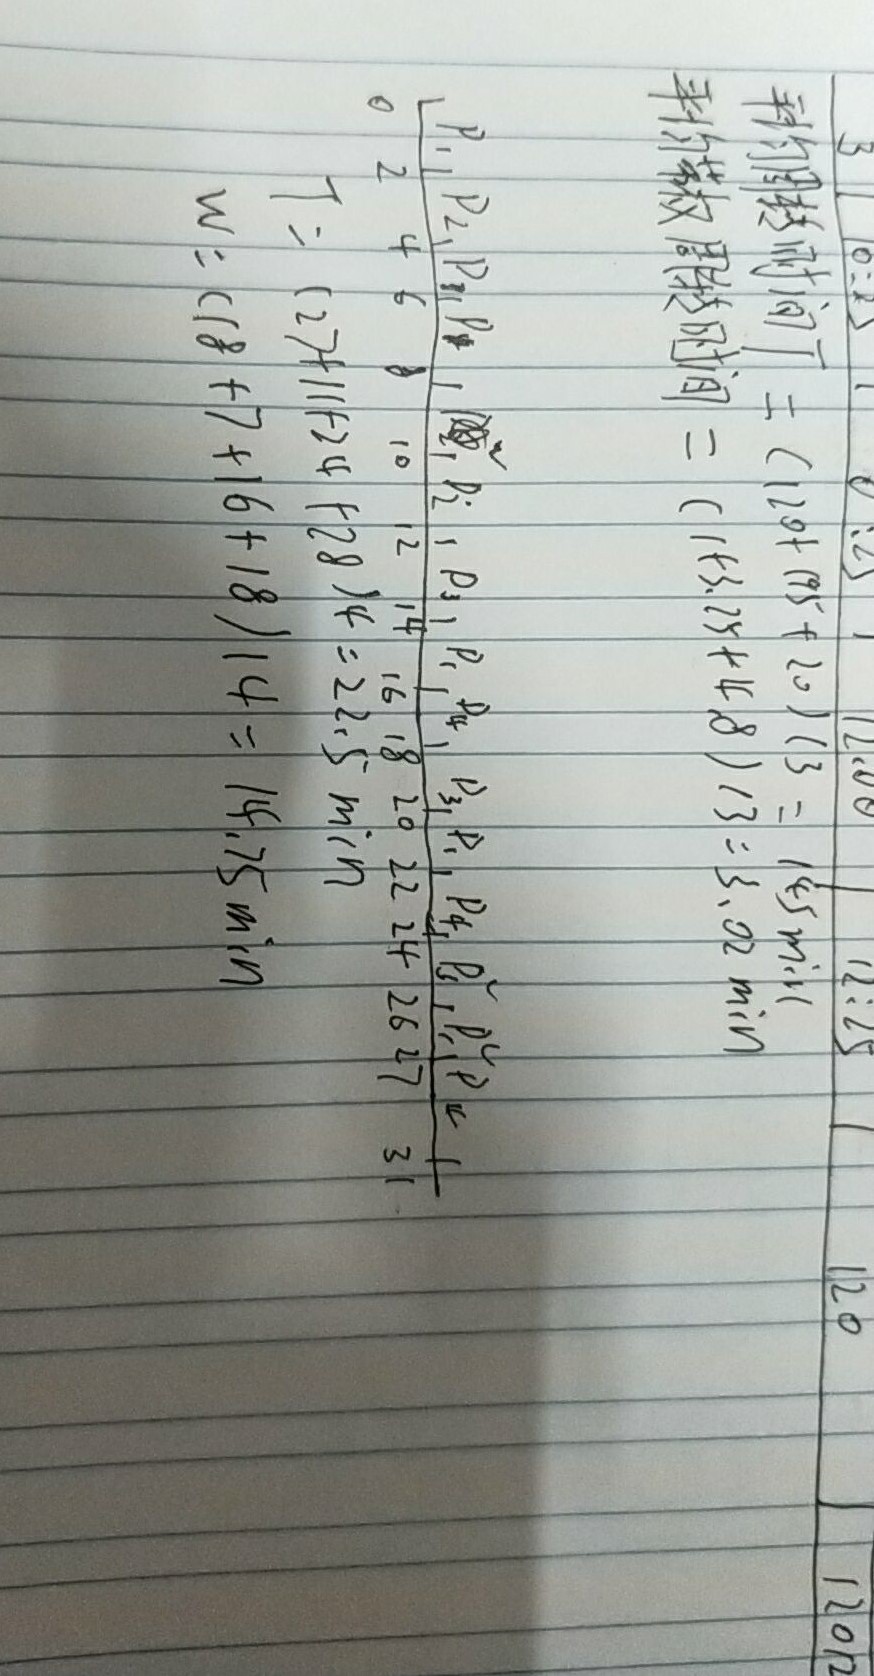 3 | 10:25 | 0:25 | 12:00 | 12:25 | 120 | 120
平均周转时间T = (120+195+20)/3 = 145min
平均带权周转时间 = (1+3.25+4.8)/3 = 3.02 min
P1, P2, P3, P1, P2, P3, P1, P4, P3, P1, P4, P3, P1, P4
0 2 4 6 8 10 12 14 16 18 20 22 24 26 27 31
T = (27+11+24+28)/4 = 22.5 min
W = (18+7+16+18)/4 = 14.75min